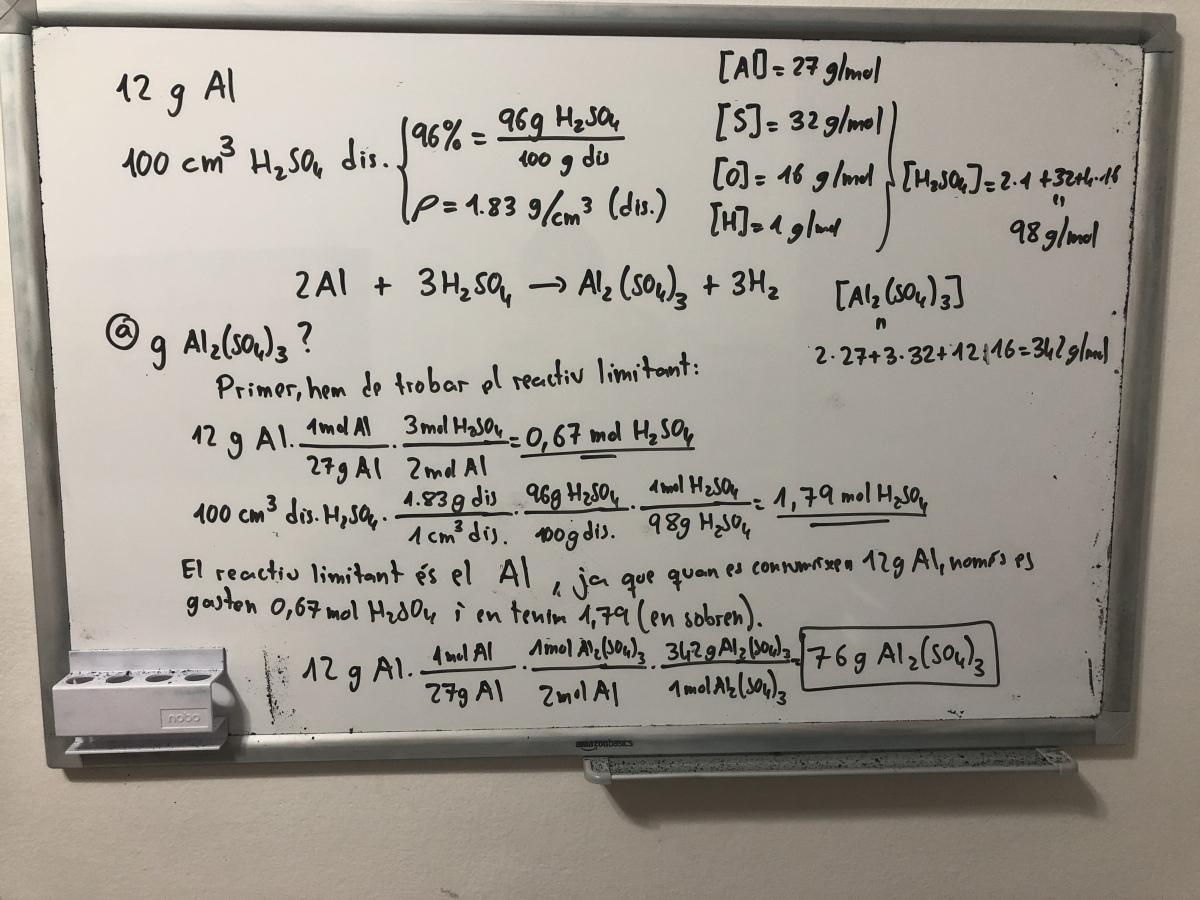 12 g Al
100 cm³ H₂SO₄ dis. { 96% = 96g H₂SO₄ / 100 g dis
ρ = 1.83 g/cm³ (dis.)
[Al] = 27 g/mol
[S] = 32 g/mol
[O] = 16 g/mol
[H] = 1 g/mol
} [H₂SO₄] = 2·1 + 32 + 4·16
"
98 g/mol
2Al + 3H₂SO₄ → Al₂(SO₄)₃ + 3H₂
[Al₂(SO₄)₃]
"
2·27+3·32+12·16=342 g/mol
a) g Al₂(SO₄)₃?
Primer, hem de trobar el reactiv limitant:
12 g Al · 1mol Al / 27g Al · 3mol H₂SO₄ / 2mol Al = 0,67 mol H₂SO₄
100 cm³ dis. H₂SO₄ · 1.83 g dis / 1 cm³ dis. · 96g H₂SO₄ / 100g dis. · 1mol H₂SO₄ / 98g H₂SO₄ = 1,79 mol H₂SO₄
El reactiu limitant és el Al, ja que quan es consumixen 12g Al, només es
gasten 0,67 mol H₂SO₄ i en tenim 1,79 (en sobren).
12 g Al · 1mol Al / 27g Al · 1mol Al₂(SO₄)₃ / 2mol Al · 342g Al₂(SO₄)₃ / 1mol Al₂(SO₄)₃ = 76 g Al₂(SO₄)₃
nobo
amazonbasics